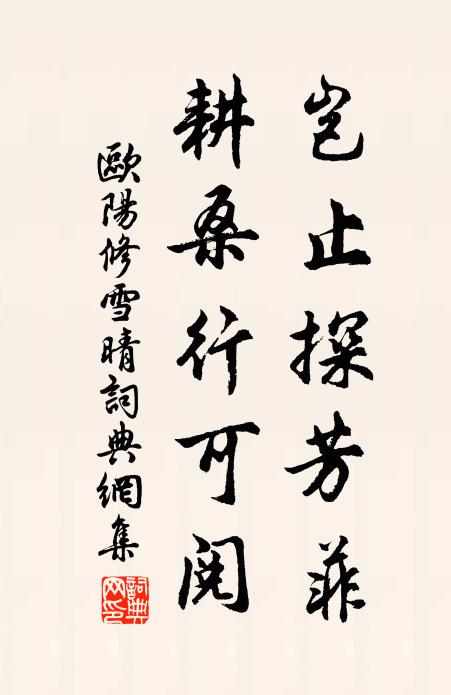 岂止探芳菲
耕桑行可阅
歐陽修雪晴詞典網集
詞典网印